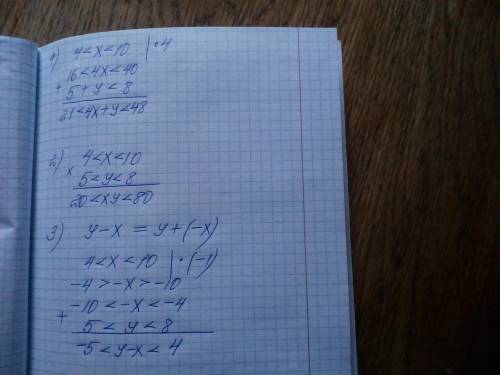 1) 4<x<10 |·4
16<4x<40
+ 5+y<8
21<4x+y<48
2) 4<x<10
x 5<y<8
20<xy<80
3) y-x = y+(-x)
4<x<10 |·(-1)
-4>-x>-10
-10<-x<-4
+ 5<y<8
-5<y-x<4